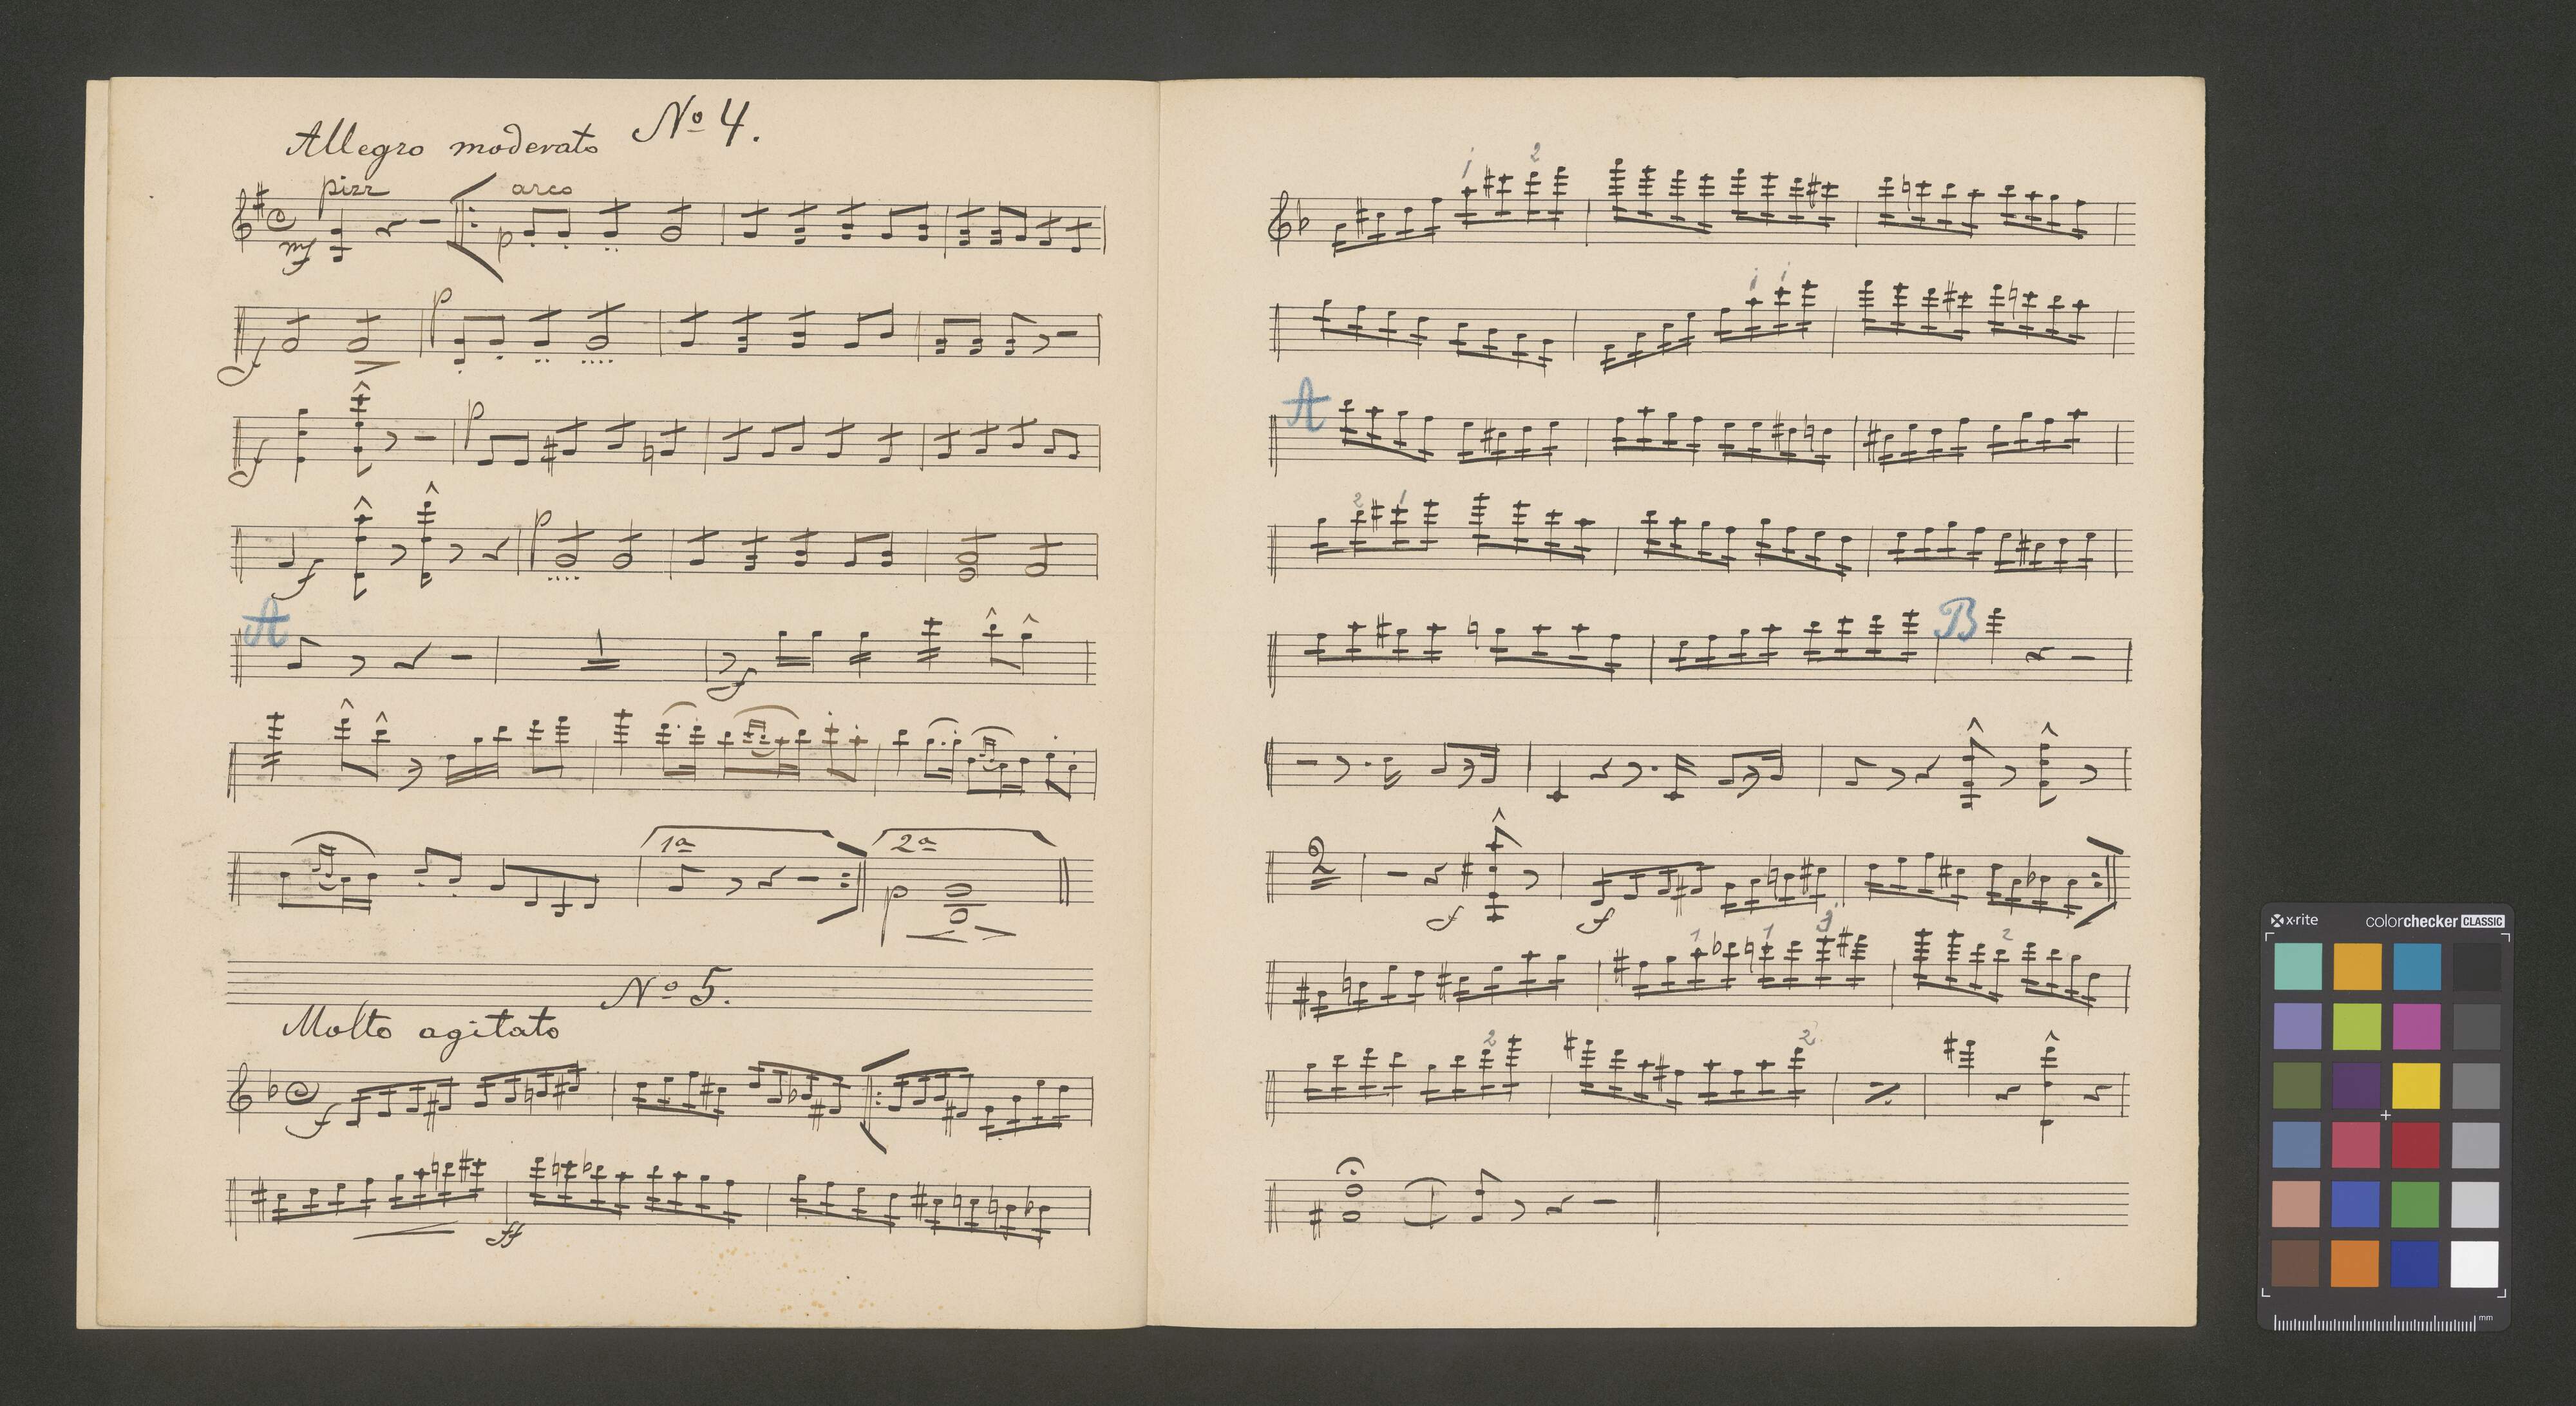 Allegro moderato Nº 4.
pizz arco
mf p
f p
f p
f p
A
f
1a 2a
p
Nº 5.
Molto agitato
f
ff
1 2
1 1
A
2 1
B
2
f f
1 1 3 2
2 2
x-rite colorchecker CLASSIC
mm